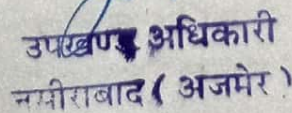 उपखण्ड अधिकारी
नसीराबाद ( अजमेर )